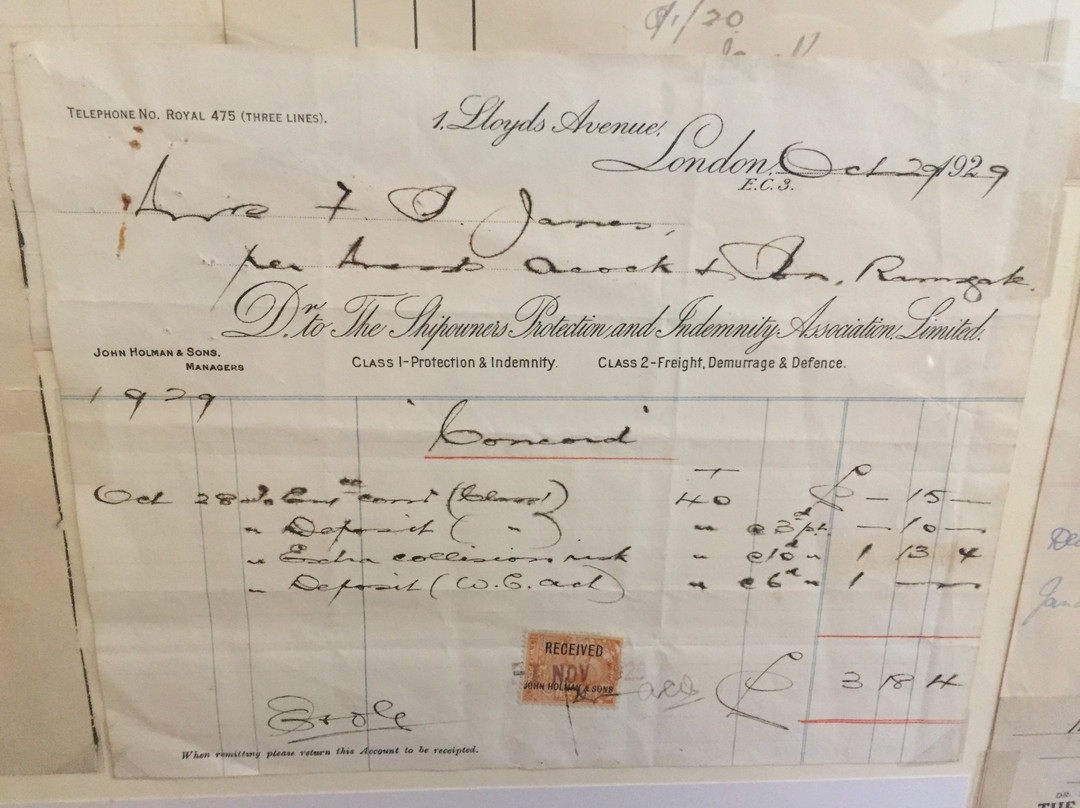 1/20
TELEPHONE NO. ROYAL 475 (THREE LINES).
1, Lloyds Avenue,
London, Oct 29 1929
E.C.3.
F. J. James,
per Acock & Son, Ramsgate.
Dr. to The Shipowners Protection and Indemnity Association, Limited.
JOHN HOLMAN & SONS, MANAGERS
CLASS 1-PROTECTION & INDEMNITY. CLASS 2-FREIGHT, DEMURRAGE & DEFENCE.
1929
"Concord"
Oct 28 (Class 1) 40 £ — 15 —
" Deposit ( " ) " @ 3d pt. — 10 —
" Extra collision risk " @ 10d " 1 13 4
" Deposit (W.C. act) " @ 6d " 1 — —
RECEIVED
1 NOV
JOHN HOLMAN & SONS
£ 3 18 4
E & O E
When remitting please return this Account to be receipted.